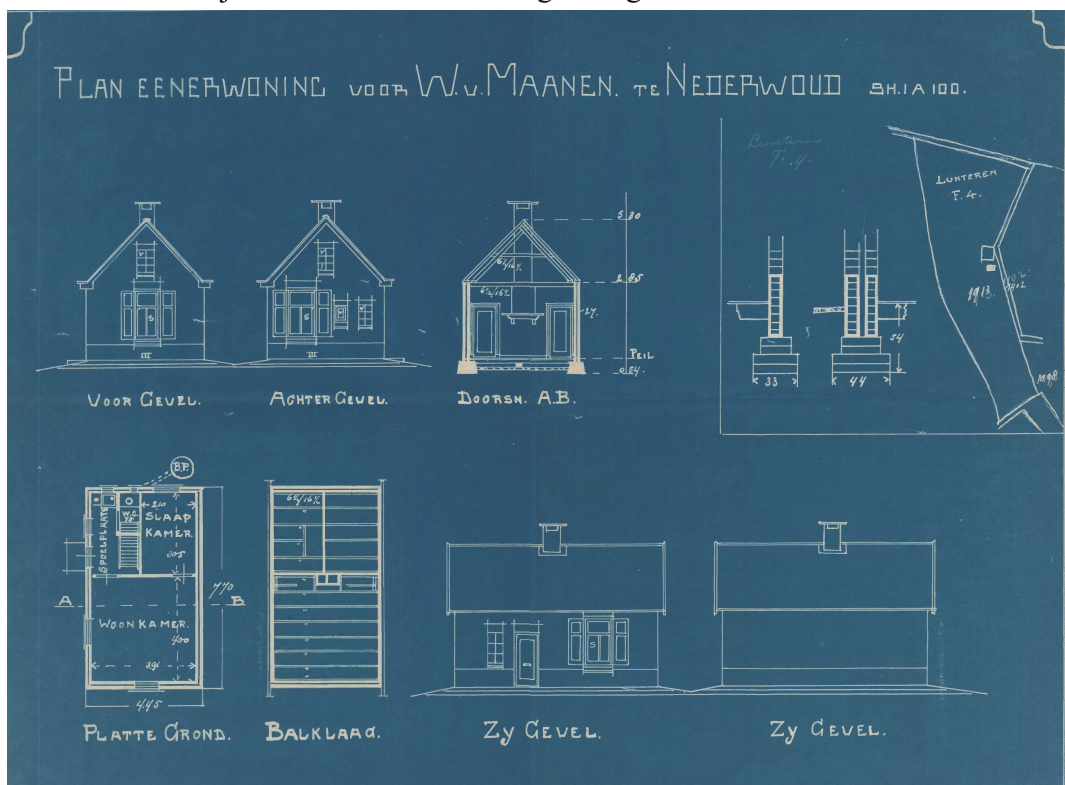 PLAN EENERWONING VOOR W.v. MAANEN. TE NEDERWOUD SH. 1 A 100.
Lunteren
F. 4.
LUNTEREN
F. 4.
1913.
5 30
2 85
6½/16½
6½/16½
27.
PEIL
0 54.
54
33
44
S
S
III
III
VOOR GEVEL.
ACHTER GEVEL.
DOORSN. A.B.
B.P.
W.C.
210
SLAAP
KAMER.
SPOELPLAATS
305
770
A
B
WOON KAMER.
400
391
445
6½/16½
S
PLATTE GROND.
BALKLAAG.
ZY GEVEL.
ZY GEVEL.